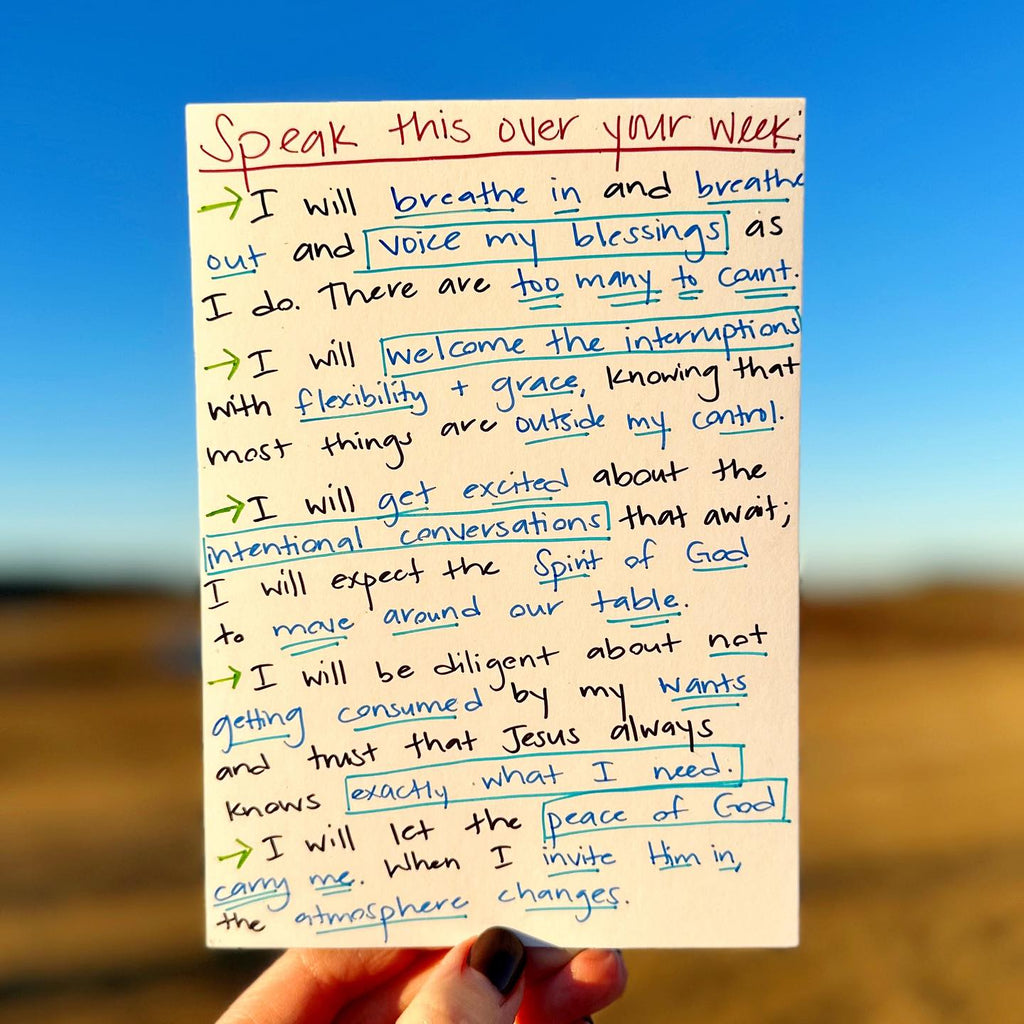 Speak this over your week:
→ I will breathe in and breathe
out and voice my blessings as
I do. There are too many to count.
→ I will welcome the interruptions
with flexibility + grace, knowing that
most things are outside my control.
→ I will get excited about the
intentional conversations that await;
I will expect the Spirit of God
to move around our table.
→ I will be diligent about not
getting consumed by my wants
and trust that Jesus always
knows exactly what I need.
→ I will let the peace of God
carry me. When I invite Him in,
the atmosphere changes.